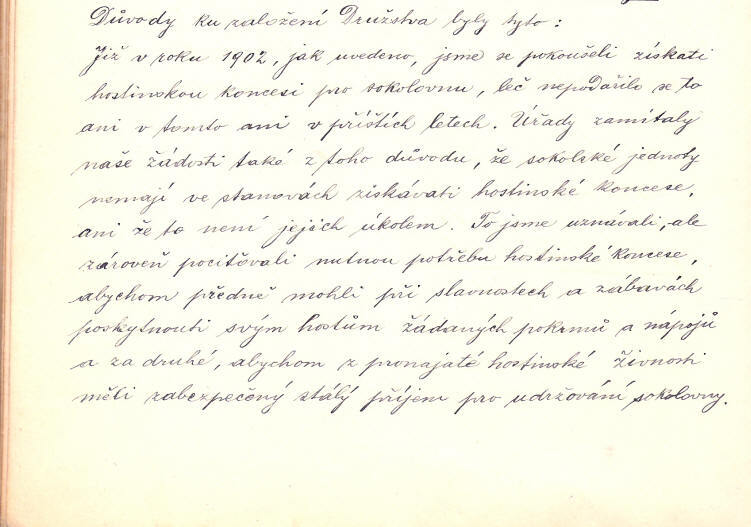 Důvody ku založení Družstva byly tyto:
Již v roku 1902, jak uvedeno, jsme se pokoušeli získati
hostinskou koncesi pro sokolovnu, leč nepodařilo se to
ani v tomto ani v příštích letech. Úřady zamítaly
naše žádosti také z toho důvodu, že sokolské jednoty
nemají ve stanovách získávati hostinské koncese,
ani že to není jejich úkolem. To jsme uznávali, ale
zároveň pociťovali nutnou potřebu hostinské koncese,
abychom předně mohli při slavnostech a zábavách
poskytnouti svým hostům žádaných pokrmů a nápojů
a za druhé, abychom z pronajaté hostinské živnosti
měli zabezpečený stálý příjem pro udržování sokolovny.